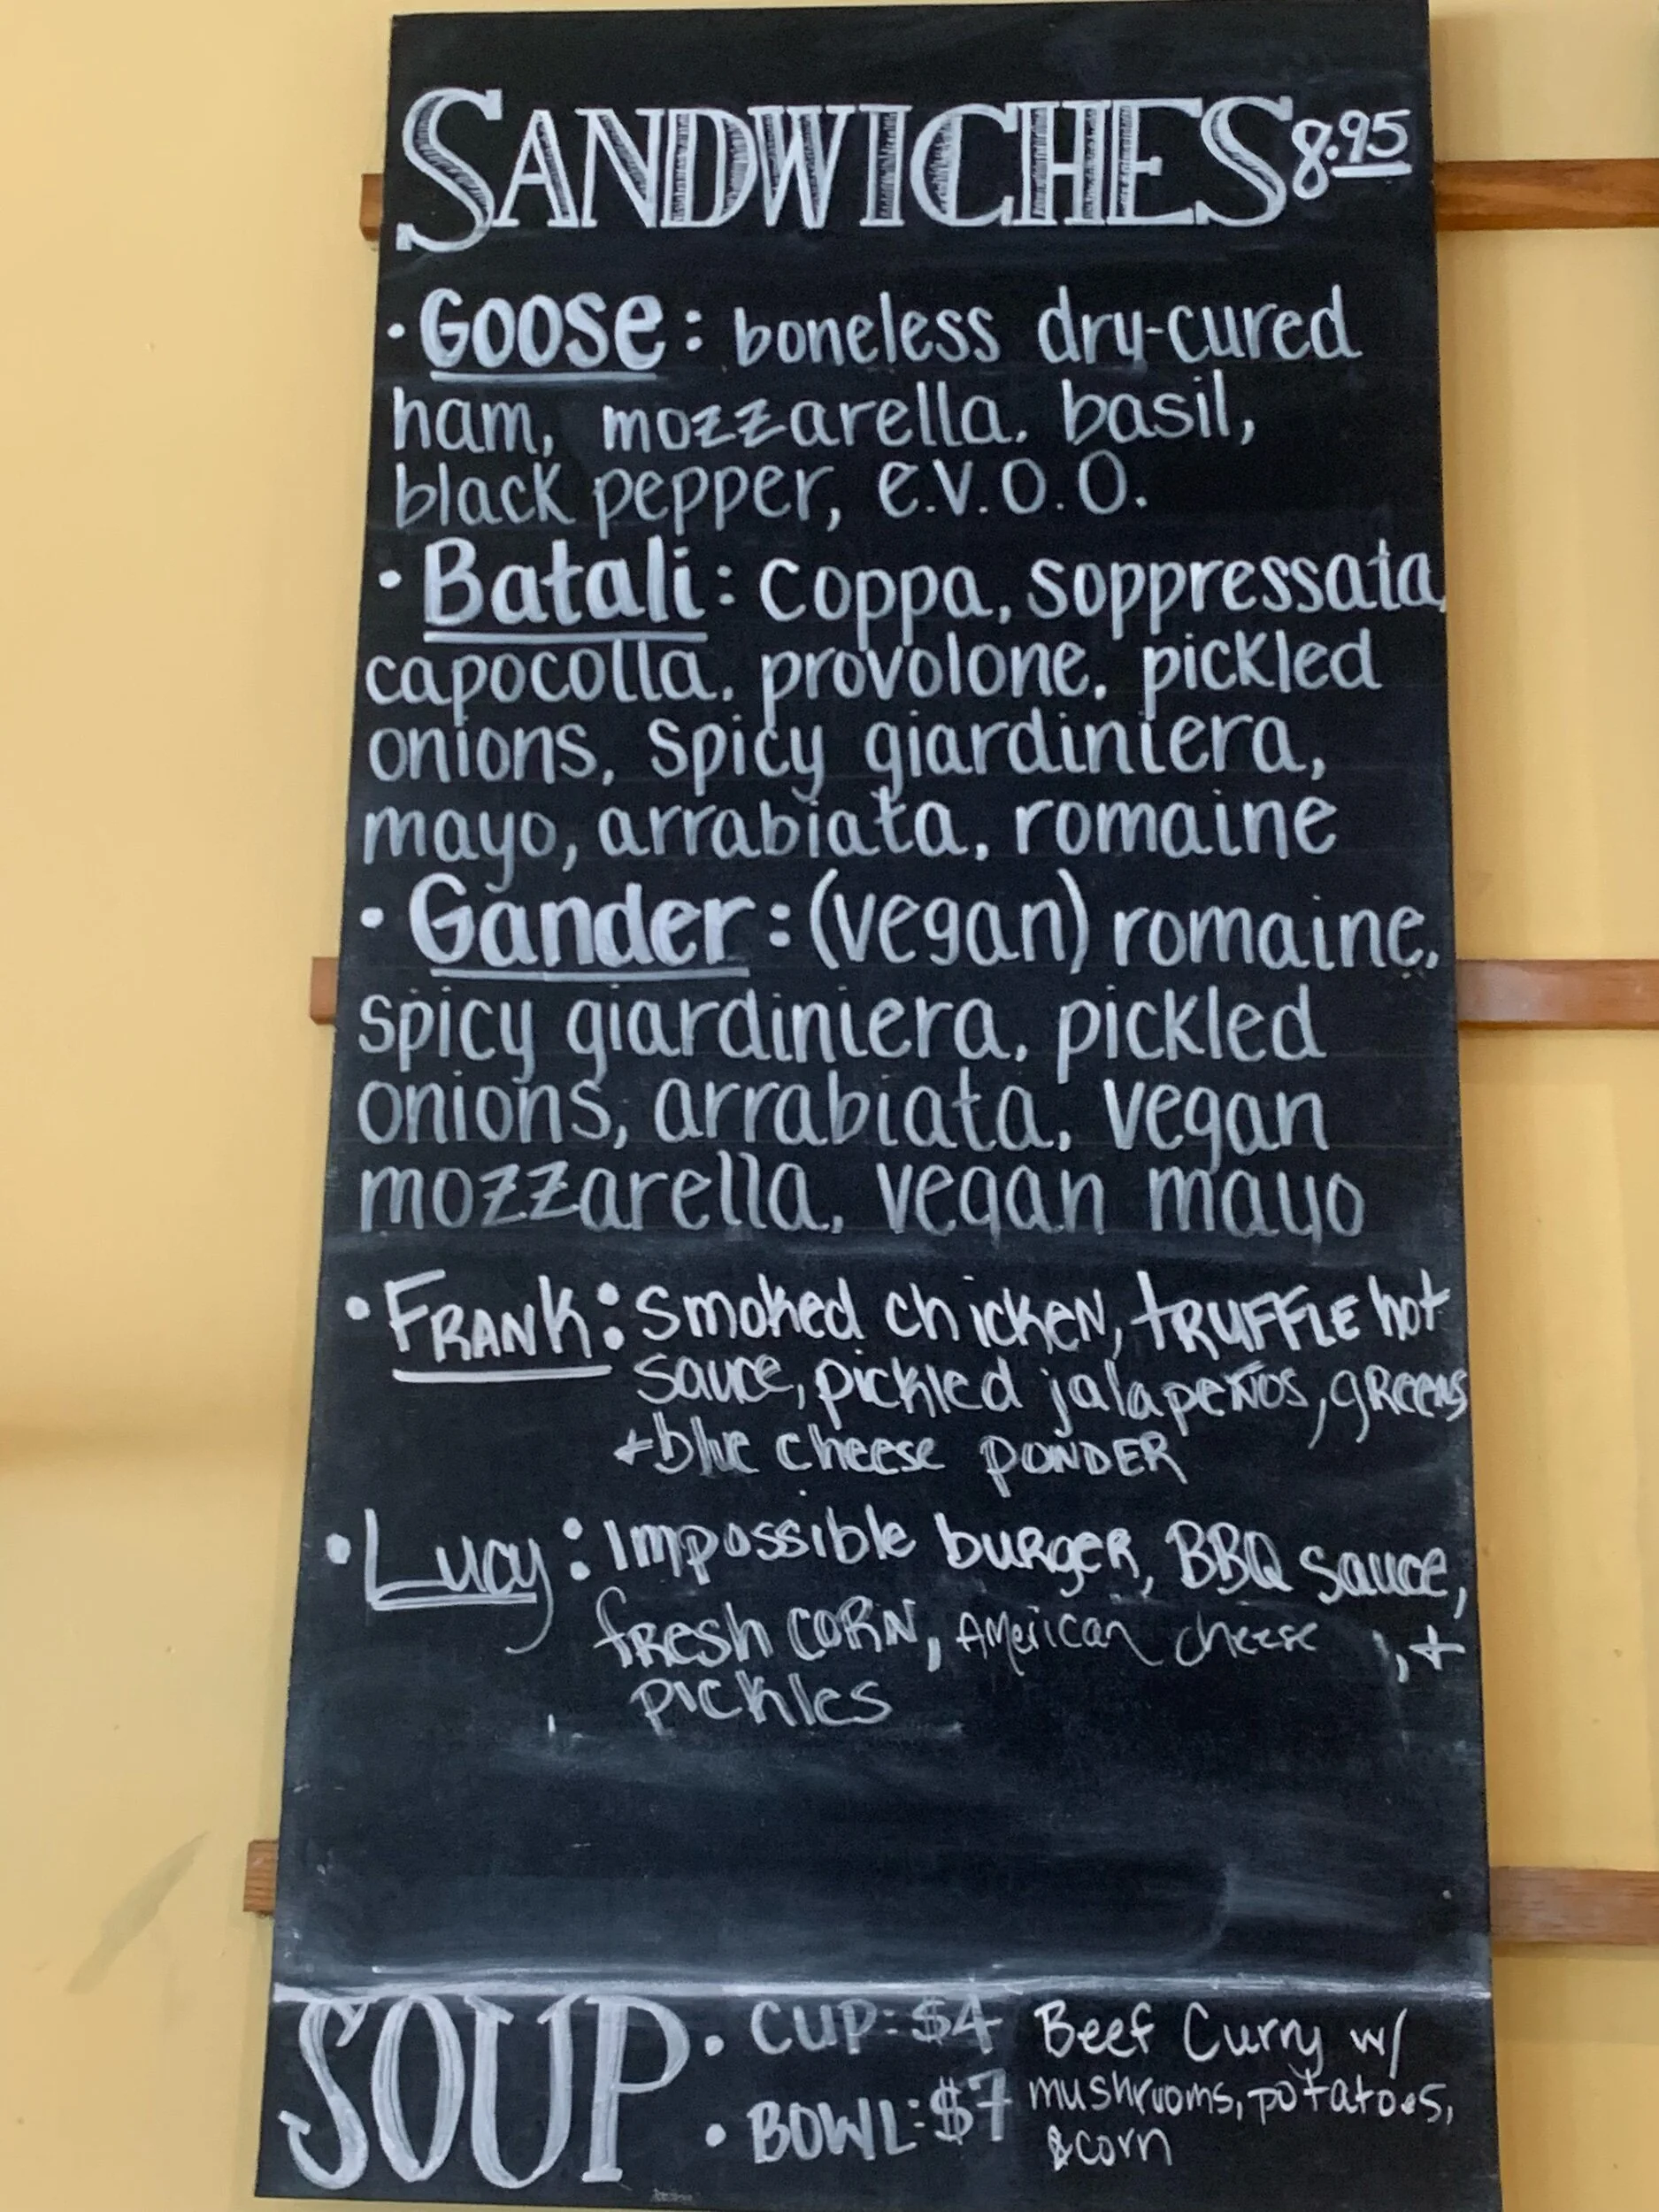 SANDWICHES 8.95
• GOOSE: boneless dry-cured
ham, mozzarella, basil,
black pepper, e.v.o.o.
• Batali: coppa, soppressata,
capocolla, provolone, pickled
onions, spicy giardiniera,
mayo, arrabiata, romaine
• Gander: (vegan) romaine,
spicy giardiniera, pickled
onions, arrabiata, vegan
mozzarella, vegan mayo
• FRANK: Smoked chicken, TRUFFLE hot
sauce, pickled jalapeños, greens
+ blue cheese POWDER
• Lucy: Impossible burger, BBQ sauce,
fresh CORN, American cheese, +
pickles
SOUP • CUP: $4 Beef Curry w/
• BOWL: $7 mushrooms, potatoes,
& corn